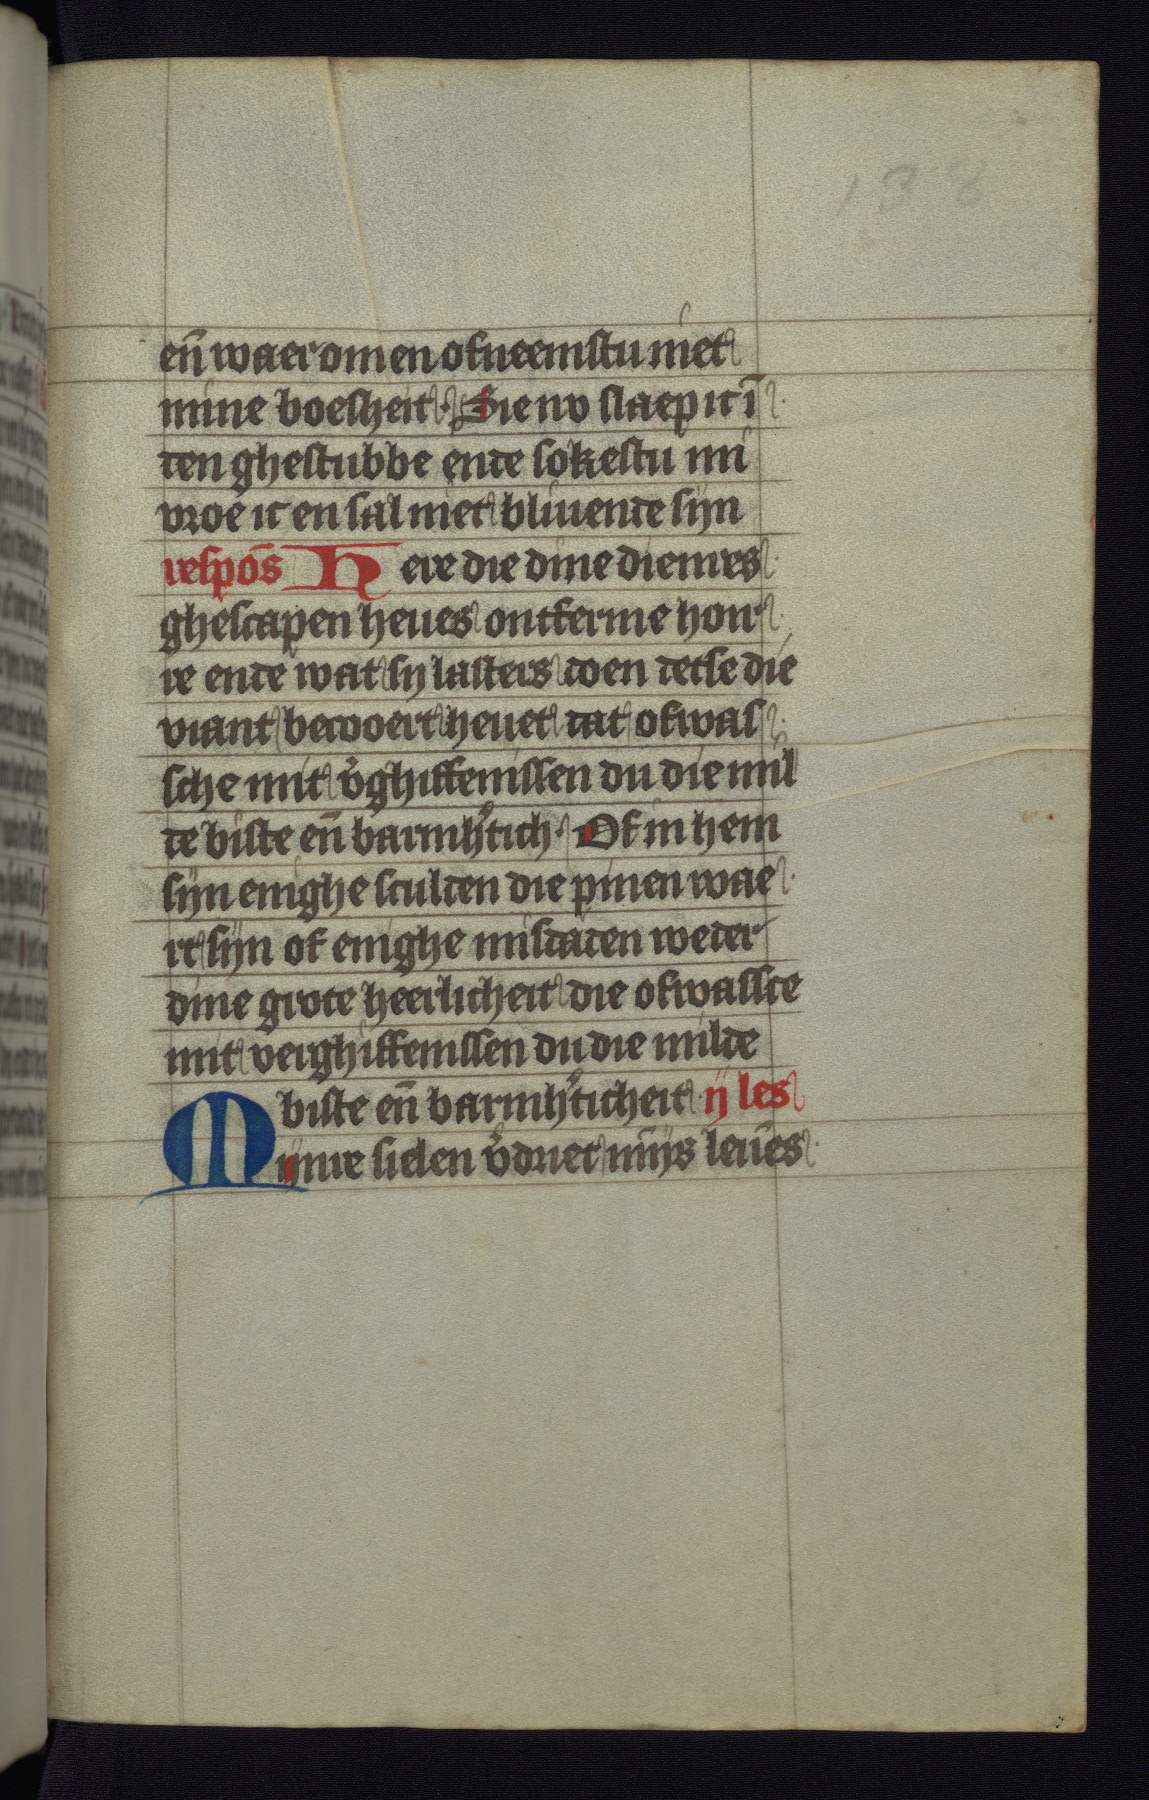 138
en̄ waer om en ofneemstu niet
mine boesheit · Sie nv slaep ic ī
den ghestubbe ende sokestu mi
vroe ic en sal niet bliuende sijn
respōs Here die dine dienres
ghescapen heues ontferme hon
re ende wat sy lasters doen detse die
viant becooert heuet dat ofwas
sche mit v̉ghiffenissen du die mil
de biste en̄ barmh̉tich · Of in hem
sijn enighe sculden die pinen wae
rt sijn of enighe misdaden weder
dine grote heerlicheit die ofwassce
mit verghiffenissen du die milde
biste en̄ barmh̉ticheit · ij les
Mijnre sielen v̉driet mījs leuēs